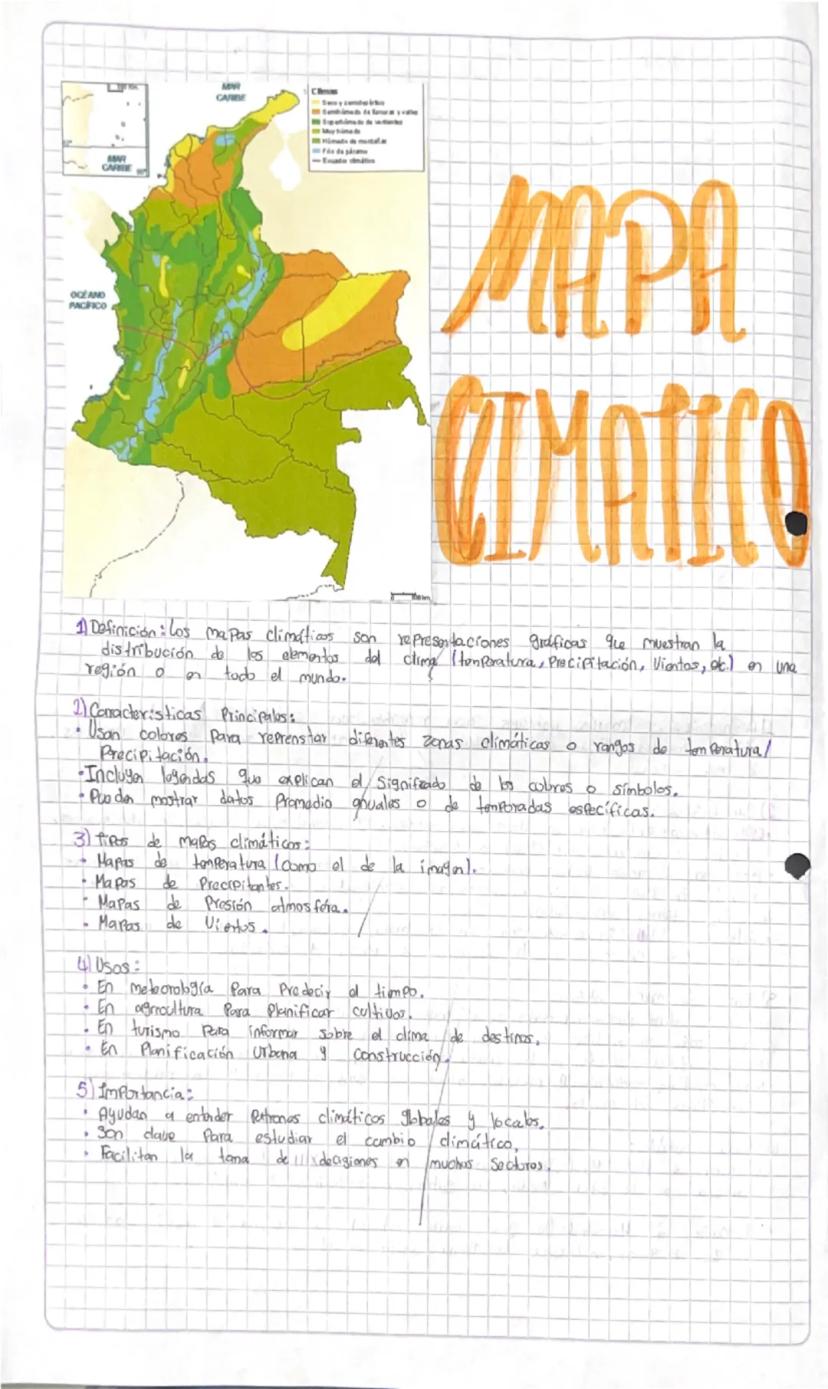 MAR
CARIBE
MAR
CARIBE
OCÉANO
PACÍFICO
Climas
Seco y semidesértico
Semihúmedo de llanuras y valles
Superhúmedo de vertientes
Muy húmedo
Húmedo de montañas
Frío de páramo
Ecuador climático
MAPA
CLIMATICO
1) Definición: Los mapas climáticos son representaciones gráficas que muestran la
distribución de los elementos del clima (temperatura, Precipitación, Vientos, etc.) en una
región o en todo el mundo.
2) Características Principales:
• Usan colores para reprenstar diferentes zonas climáticas o rangos de temperatura/
Precipitación.
• Incluyen leyendas que explican el significado de los colores o símbolos.
• Pueden mostrar datos Promedio anuales o de temporadas específicas.
3) tipos de mapas climáticos:
• Mapas de temperatura (como el de la imagen).
• Mapas de Precipitantes.
• Mapas de Presión atmosféra.
• Mapas de Vientos.
4) Usos:
• En meteorología Para Predecir el tiempo.
• En agricultura Para Planificar cultivos.
• En turismo Para informar sobre el clima de destinos.
• En Planificación Urbana y construcción.
5) Importancia:
• Ayudan a entender Patrones climáticos globales y locales.
• Son clave Para estudiar el cambio climático,
• Facilitan la toma de decisiones en muchos sectores.